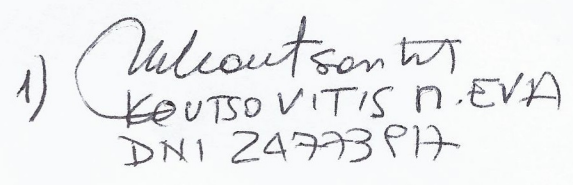 1)
KOUTSOVITIS M. EVA
DNI 24773917